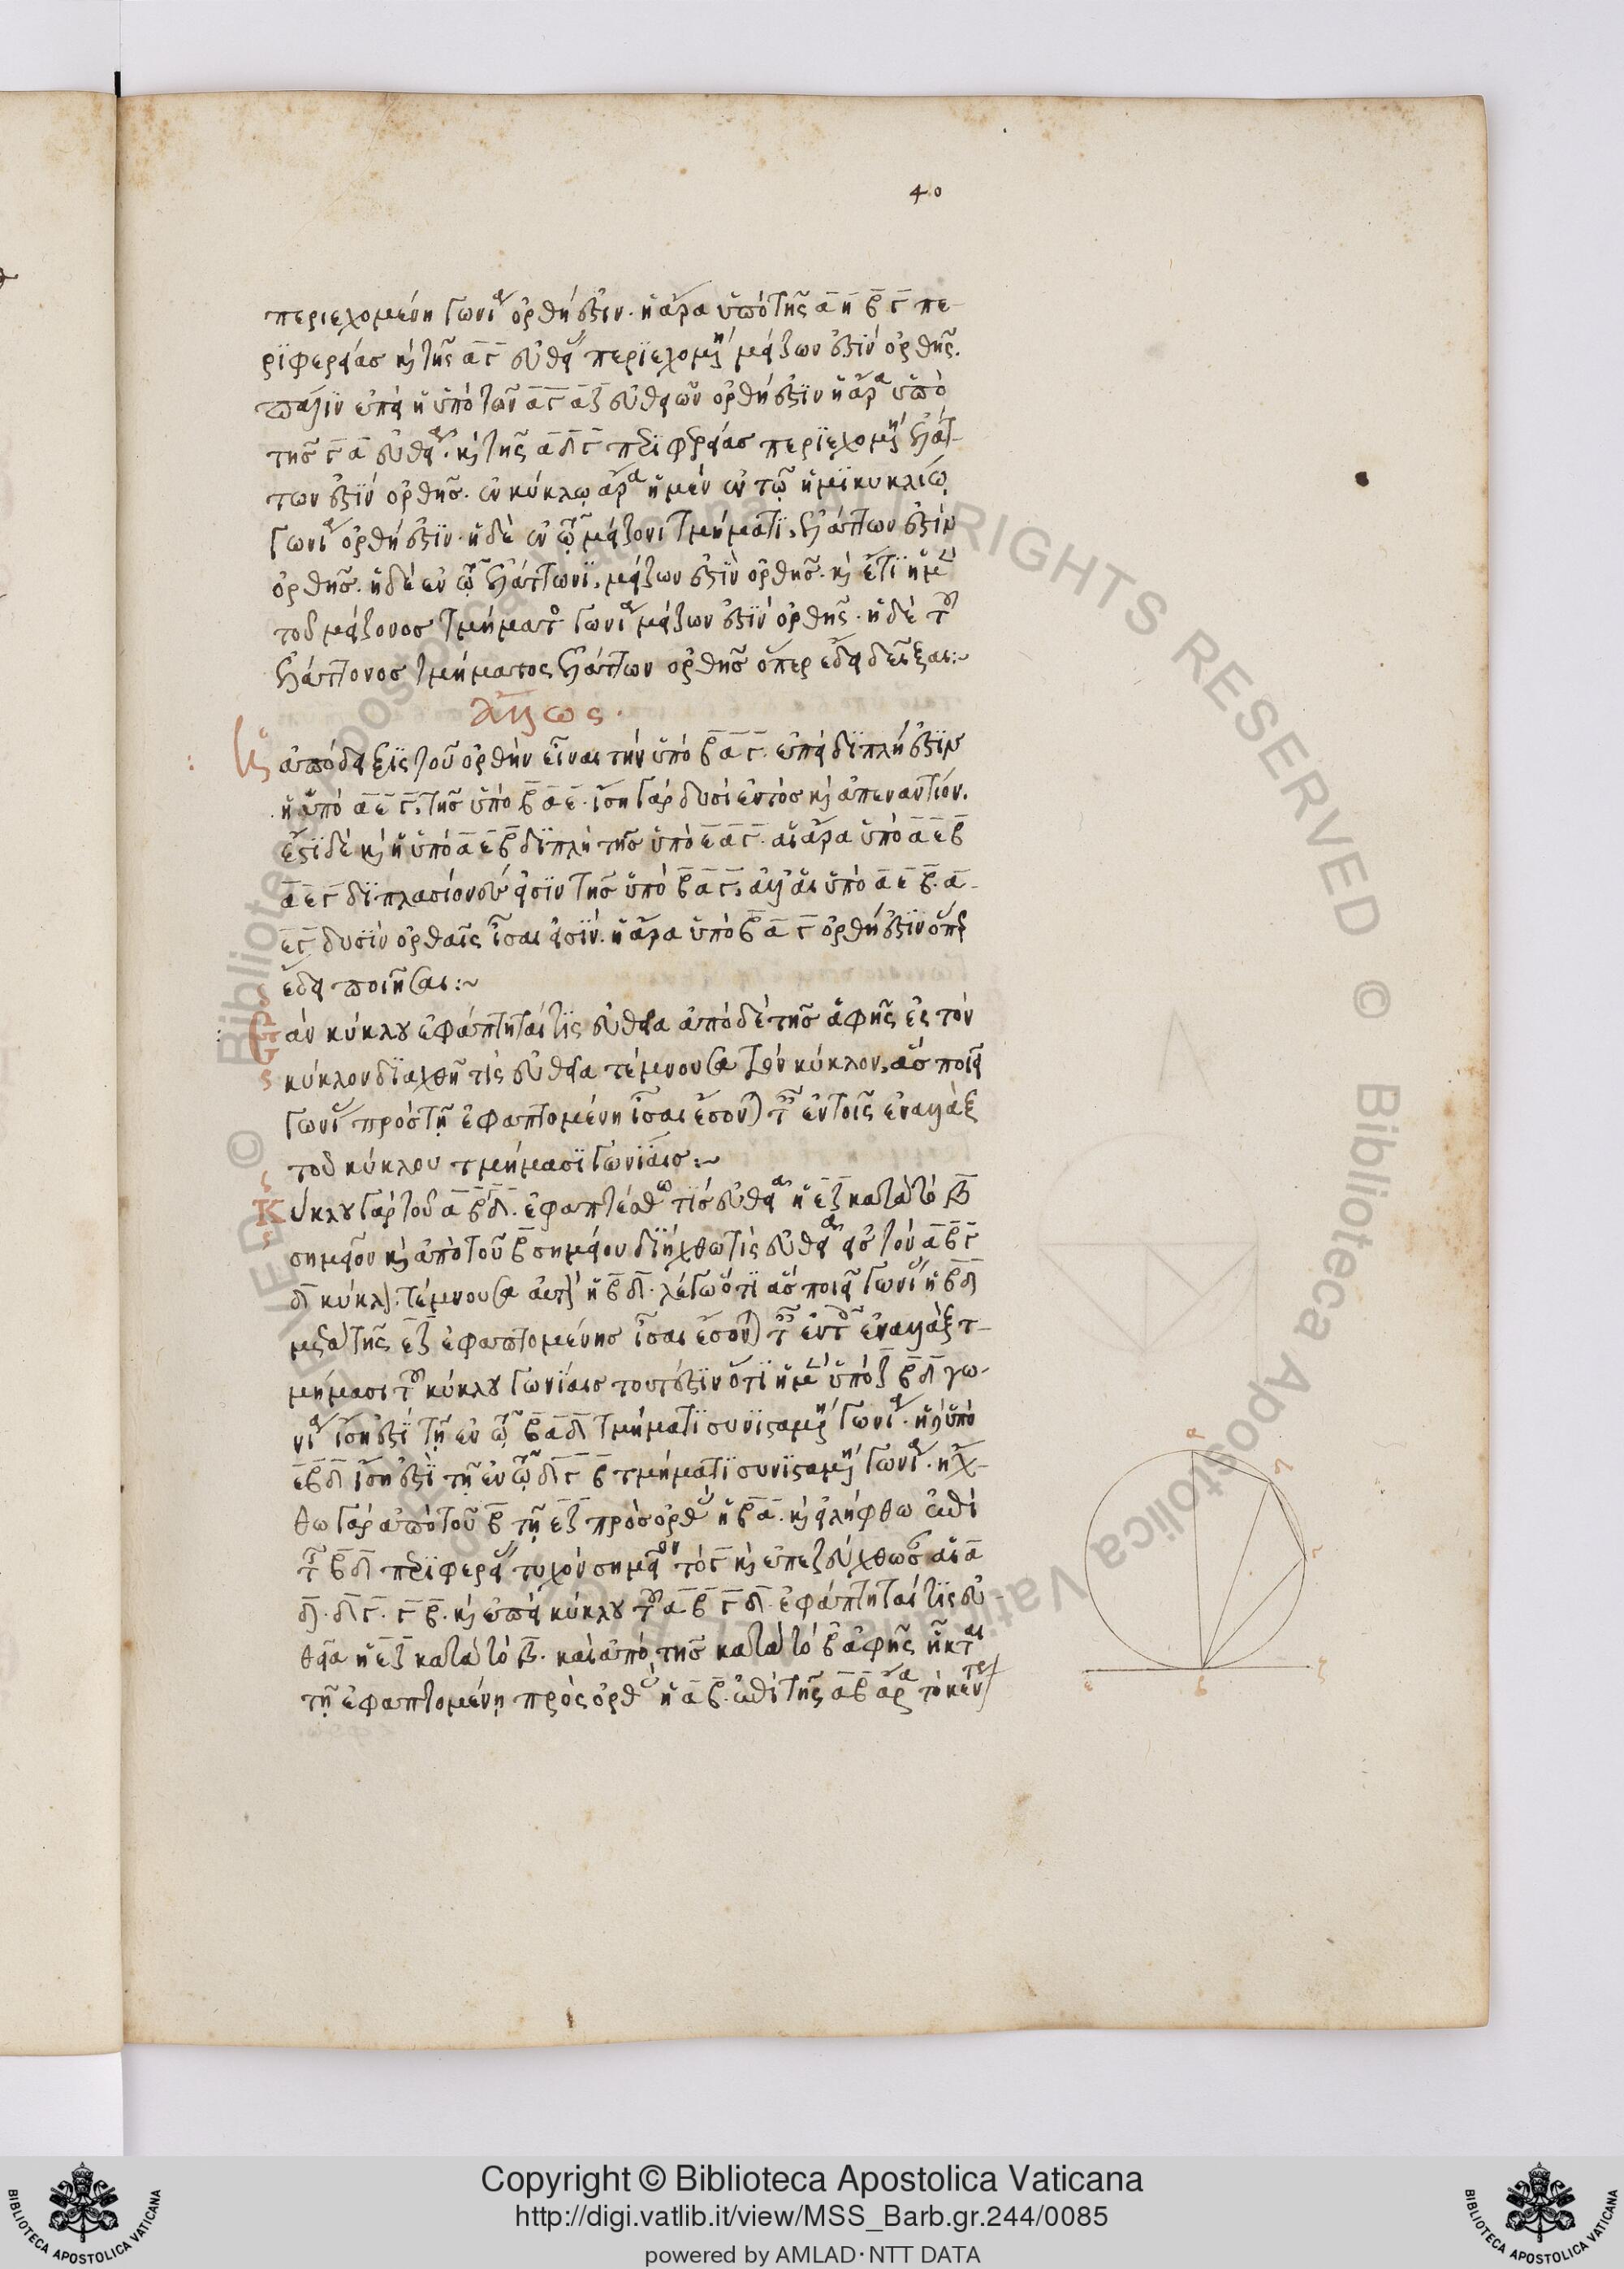 40
περιεχομένη γωνία ὀρθή ἐστιν. ἡ ἄρα ὑπὸ τῆς α η β γ πε-
ριφερείας καὶ τῆς α γ εὐθείας περιεχομένη μείζων ἐστὶν ὀρθῆς.
πάλιν ἐπεὶ ἡ ὑπὸ τῶν α γ α ζ εὐθειῶν ὀρθή ἐστιν ἡ ἄρα ὑπὸ
τῆς γ α εὐθείας καὶ τῆς α δ γ περιφερείας περιεχομένη ἐλάτ-
των ἐστὶν ὀρθῆς. ἐν κύκλῳ ἄρα ἡ μὲν ἐν τῷ ἡμικυκλίῳ
γωνία ὀρθή ἐστιν. ἡ δὲ ἐν τῷ μείζονι τμήματι, ἐλάττων ἐστὶν
ὀρθῆς. ἡ δὲ ἐν τῷ ἐλάττωνι, μείζων ἐστὶν ὀρθῆς. καὶ ἔτι ἡ μὲν
τοῦ μείζονος τμήματος γωνία μείζων ἐστὶν ὀρθῆς. ἡ δὲ τοῦ
ἐλάττονος τμήματος ἐλάττων ὀρθῆς ὅπερ ἔδει δεῖξαι:~
ἄλλως.
ἀπόδειξις τοῦ ὀρθὴν εἶναι τὴν ὑπὸ β α γ. ἐπεὶ διπλή ἐστιν
ἡ ὑπὸ α ε γ, τῆς ὑπὸ β α ε. ἴση γὰρ δυσὶ ἐντὸς καὶ ἀπεναντίον.
ἔστι δὲ καὶ ἡ ὑπὸ α ε β διπλὴ τῆς ὑπὸ ε α γ. αἱ ἄρα ὑπὸ α ε β
α ε γ διπλασίον εἰσιν τῆς ὑπὸ β α γ, ἀλλ' αἱ ὑπὸ α ε β. α
ε γ δυσὶν ὀρθαῖς ἴσαι εἰσίν. ἡ ἄρα ὑπὸ β α γ ὀρθή ἐστιν ὅπερ
ἔδει ποιῆσαι:~
ἐὰν κύκλου ἐφάπτηταί τις εὐθεῖα ἀπὸ δὲ τῆς ἁφῆς εἰς τὸν
κύκλον διαχθῇ τις εὐθεῖα τέμνουσα τὸν κύκλον, ἃς ποιεῖ
γωνίας πρὸς τῇ ἐφαπτομένη ἴσαι ἔσονται ταῖς ἐν τοῖς ἐναλλὰξ
τοῦ κύκλου τμήμασι γωνίαις:~
Κύκλου γὰρ τοῦ α β γ δ. ἐφαπτέσθω τις εὐθεῖα ἡ ε ζ κατὰ τὸ β
σημεῖον καὶ ἀπὸ τοῦ β σημείου διήχθω τις εὐθεῖα εἰς τὸν α β γ
δ κύκλον. τέμνουσα αὐτὸν ἡ β δ. λέγω ὅτι ἃς ποιεῖ γωνίας ἡ β δ
μετὰ τῆς ε ζ ἐφαπτομένης ἴσαι ἔσονται ταῖς ἐν τοῖς ἐναλλὰξ τ-
μήμασι τοῦ κύκλου γωνίαις τουτέστιν ὅτι ἡ μὲν ὑπὸ ζ β δ γω-
νία ἴση ἐστὶ τῇ ἐν τῷ β α δ τμήματι συνισταμένη γωνία. ἡ δὲ ὑπὸ
ε β δ ἴση ἐστὶ τῇ ἐν τῷ δ γ β τμήματι συνισταμένη γωνία. ἤχ-
θω γὰρ ἀπὸ τοῦ β τῇ ε ζ πρὸς ὀρθὰς ἡ β α. καὶ εἰλήφθω ἐπὶ
τῆς β δ περιφερείας τυχὸν σημεῖον τὸ γ καὶ ἐπεζεύχθωσαν αἱ α
δ. δ γ. γ β. καὶ ἐπεὶ κύκλου τοῦ α β γ δ. ἐφάπτηταί τις εὐ-
θεῖα ἡ ε ζ κατὰ τὸ β. καὶ ἀπὸ τῆς κατὰ τὸ β ἁφῆς ἦκται
τῇ ἐφαπτομένῃ πρὸς ὀρθὰς ἡ α β. ἐπὶ τῆς α β ἄρα τὸ κέντρον
α
δ
γ
ε
β
ζ
Copyright © Biblioteca Apostolica Vaticana
http://digi.vatlib.it/view/MSS_Barb.gr.244/0085
powered by AMLAD·NTT DATA
BIBLIOTECA APOSTOLICA VATICANA
BIBLIOTECA APOSTOLICA VATICANA